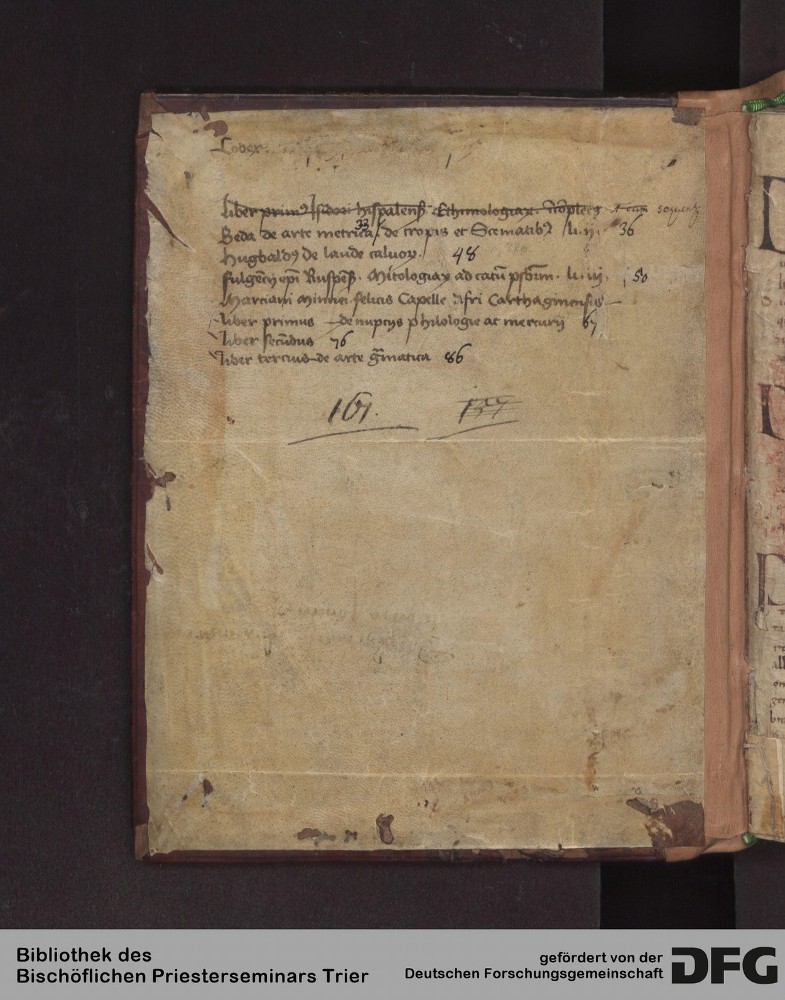 Codex
Liber primꝰ Isidori hispaleñs Ethimologiaꝝ et cum
Beda de arte metrica 33 / de tropis et Scematibꝰ li. ij. 36
Hugbaldꝰ de laude caluoꝝ. 48
fulgecij ep̄i Ruspeñs. Mitologiaꝝ ad catū p̄sbr̄m. li. iij. 50
Marciani Minnei felicis Capelle Afri Carthaginensis
liber primus de nupcijs philologie ac mercurij 67
liber secūdus 76
liber tercius de arte gr̄matica 86
161.
Bibliothek des
Bischöflichen Priesterseminars Trier
gefördert von der
Deutschen Forschungsgemeinschaft
DFG